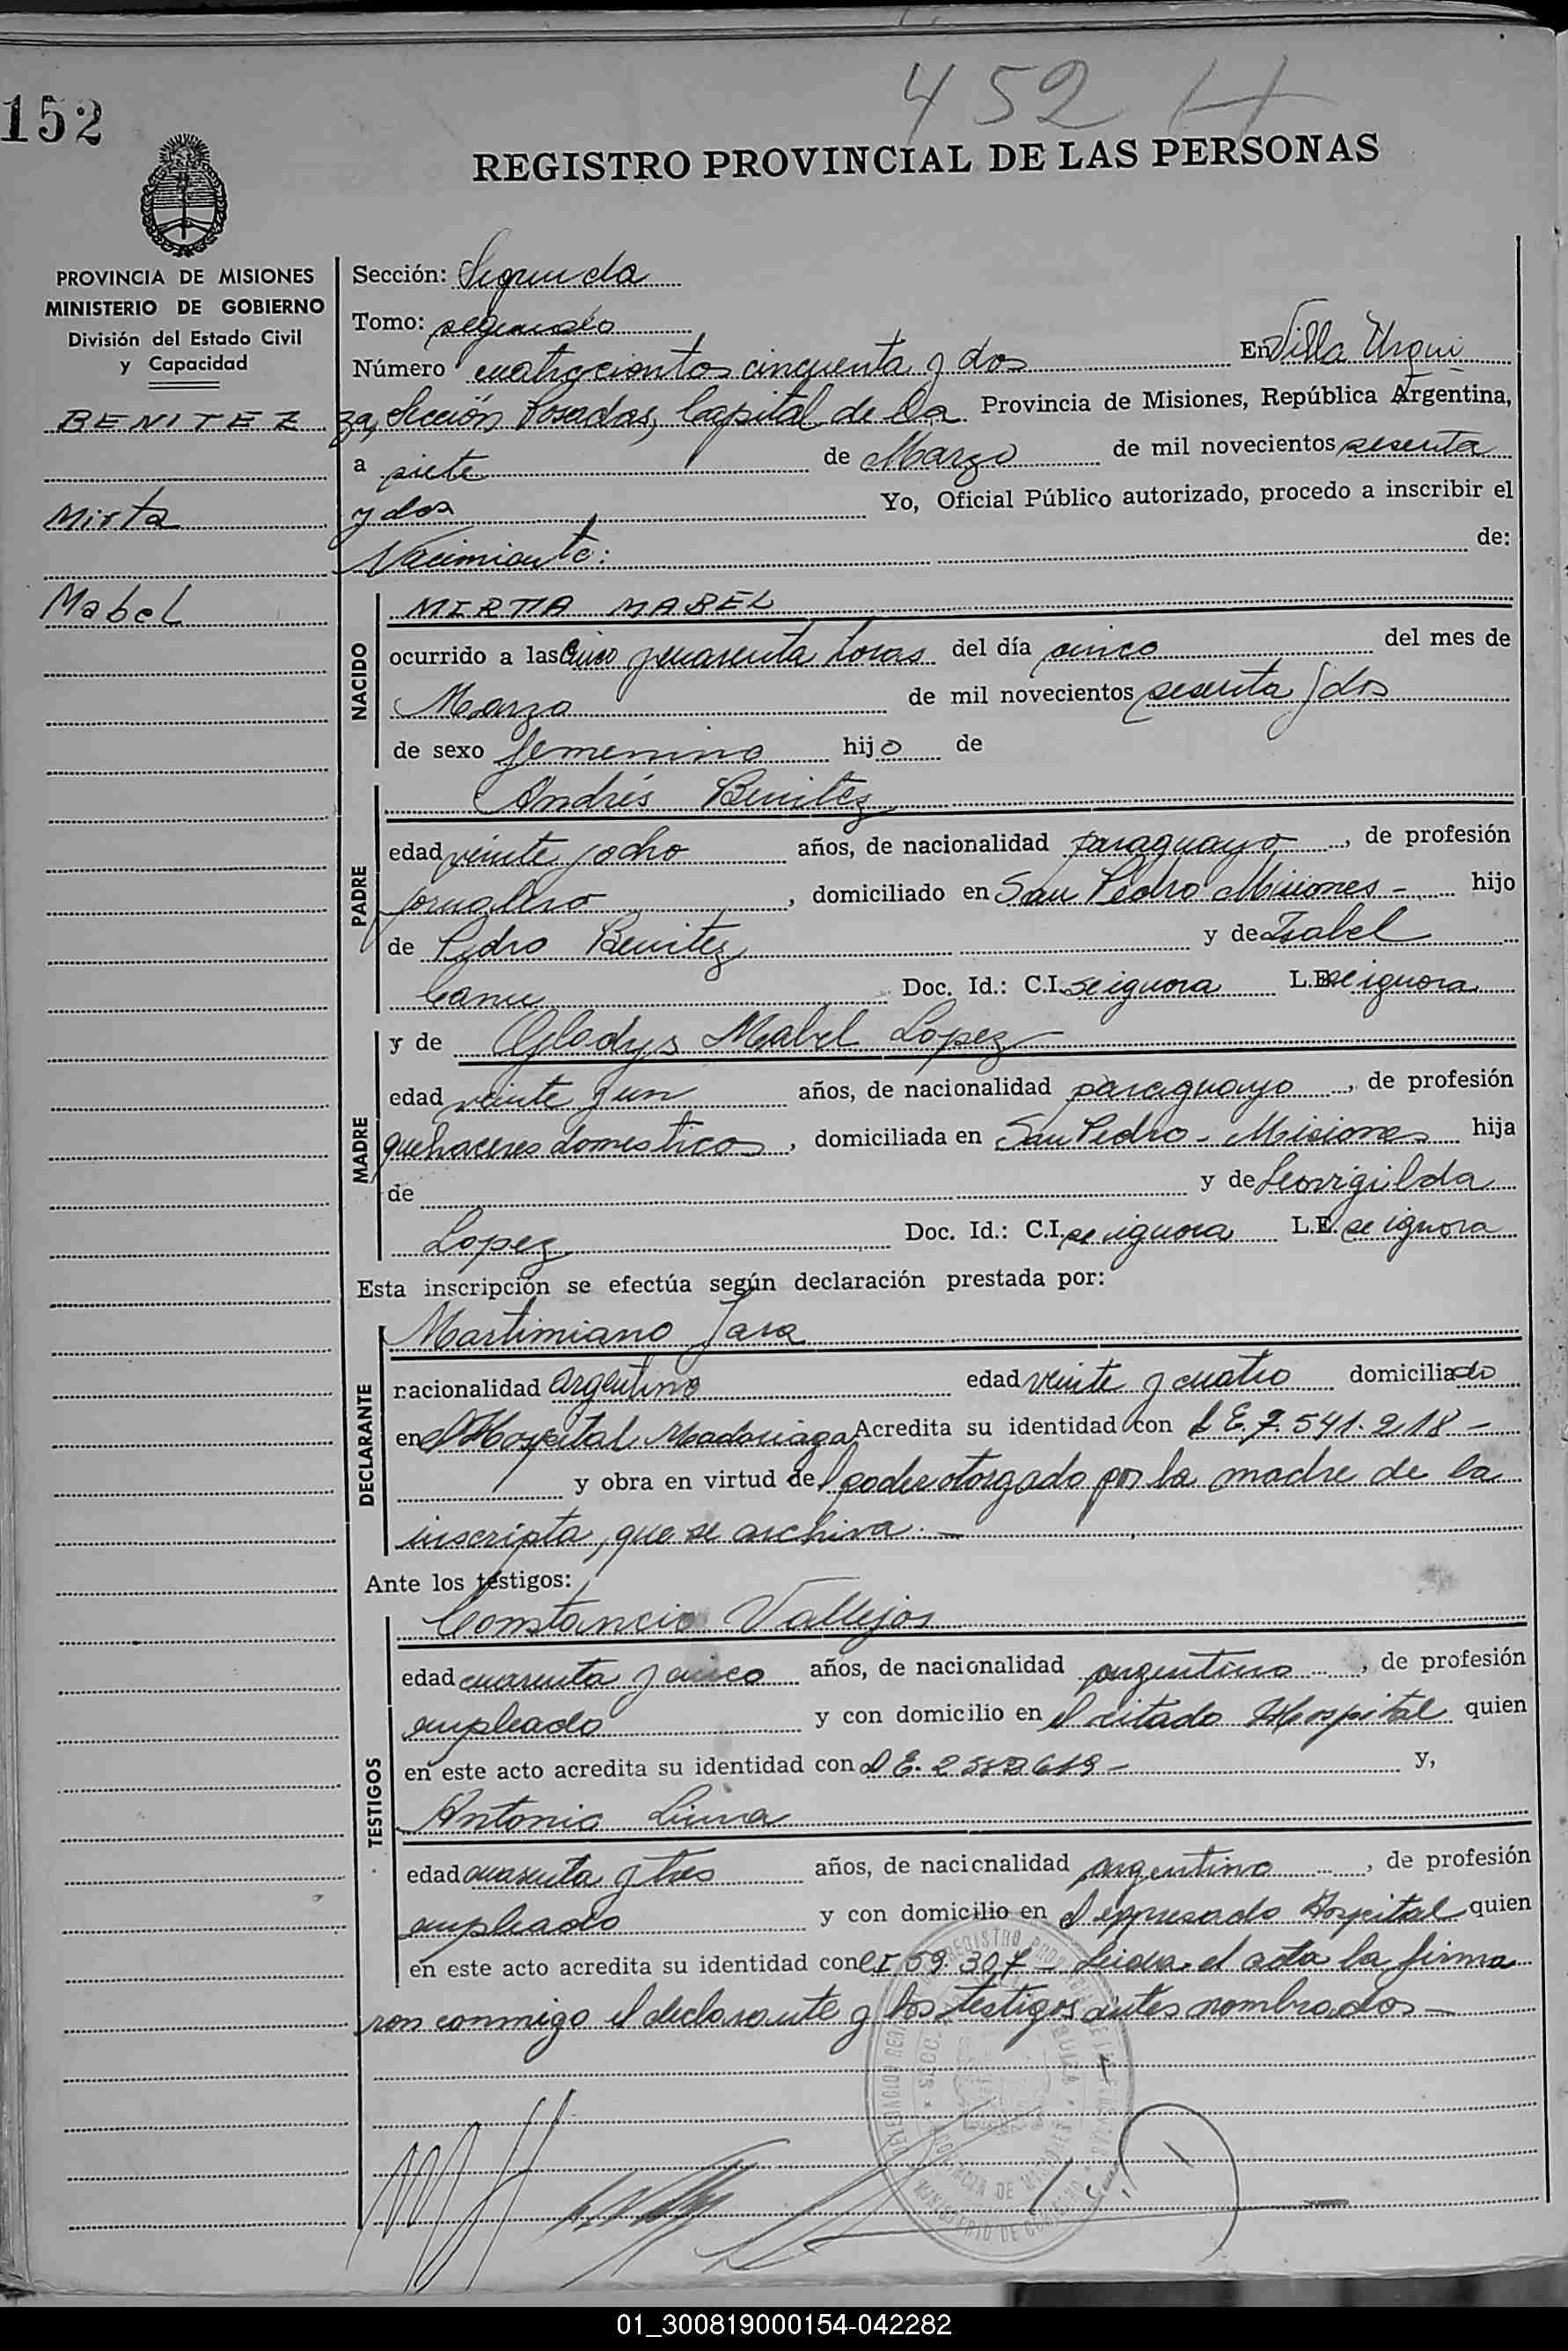 452 H
152
REGISTRO PROVINCIAL DE LAS PERSONAS
PROVINCIA DE MISIONES
MINISTERIO DE GOBIERNO
División del Estado Civil
y Capacidad
BENITEZ
Mirta
Mabel
Sección: Segunda
Tomo: segundo
Número cuatrocientos cincuenta y dos En Villa Urqui
za, Sección Posadas, Capital de la Provincia de Misiones, República Argentina,
a siete de Marzo de mil novecientos sesenta
y dos Yo, Oficial Público autorizado, procedo a inscribir el
Nacimiento: de:
NACIDO
MIRTA MABEL
ocurrido a las cinco y cuarenta horas del día cinco del mes de
Marzo de mil novecientos sesenta y dos
de sexo femenino hijo de
PADRE
Andrés Benitez
edad veinte y ocho años, de nacionalidad paraguayo, de profesión
jornalero, domiciliado en San Pedro Misiones - hijo
de Pedro Benitez y de Isabel
Doc. Id.: C.I. se ignora L.E. se ignora
MADRE
y de Gladys Mabel Lopez
edad veinte y un años, de nacionalidad paraguayo, de profesión
quehaceres domesticos, domiciliada en San Pedro - Misiones hija
de y de Leovigilda
Lopez Doc. Id.: C.I. se ignora L.E. se ignora
Esta inscripción se efectúa según declaración prestada por:
DECLARANTE
Martimiano Jara
nacionalidad argentino edad veinte y cuatro domiciliado
en el Hospital Madariaga Acredita su identidad con L E. 7.541.218 -
y obra en virtud del poder otorgado por la madre de la
inscripta, que se archiva. -
Ante los testigos:
TESTIGOS
Constancio Vallejos
edad cuarenta y cinco años, de nacionalidad argentino, de profesión
empleado y con domicilio en el citado Hospital quien
en este acto acredita su identidad con L E. y,
Antonio Lima
edad cuarenta y tres años, de nacionalidad argentino, de profesión
empleado y con domicilio en el expresado Hospital quien
en este acto acredita su identidad con CI 59.307 - Leida el acta la firma
ron conmigo el declarante y los testigos antes nombrados -
01_300819000154-042282